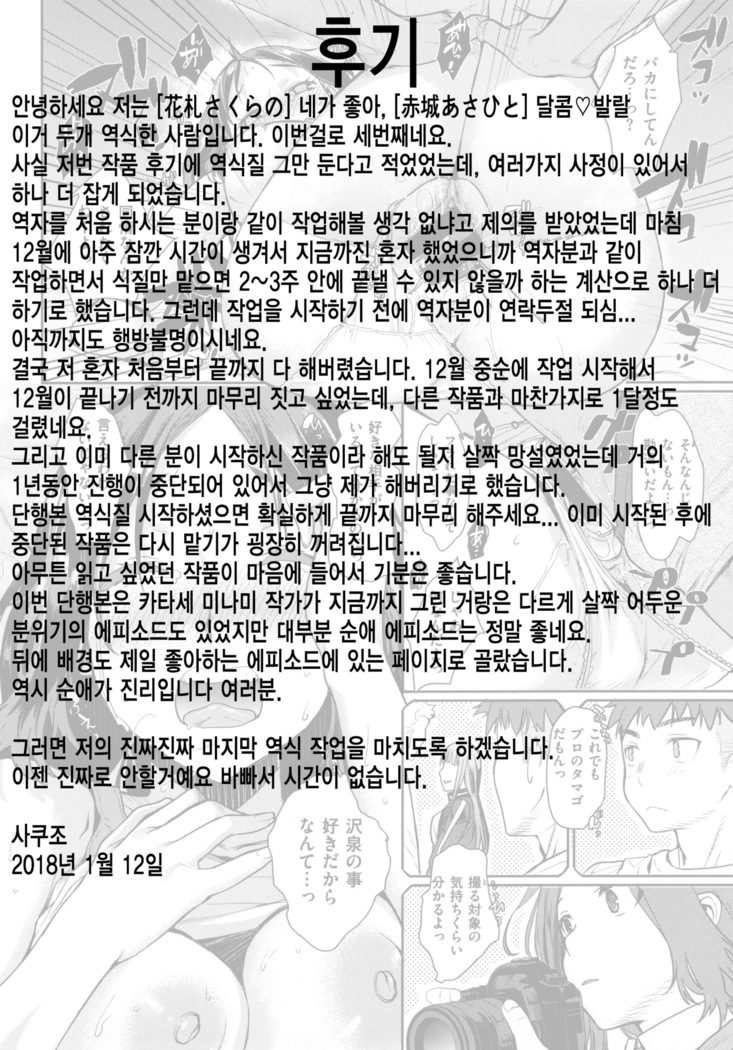 후기
안녕하세요 저는 [花札さくらの] 네가 좋아, [赤城あさひと] 달콤♡발랄
이거 두개 역식한 사람입니다. 이번걸로 세번째네요.
사실 저번 작품 후기에 역식질 그만 둔다고 적었었는데, 여러가지 사정이 있어서
하나 더 잡게 되었습니다.
역자를 처음 하시는 분이랑 같이 작업해볼 생각 없냐고 제의를 받았었는데 마침
12월에 아주 잠깐 시간이 생겨서 지금까진 혼자 했었으니까 역자분과 같이
작업하면서 식질만 맡으면 2~3주 안에 끝낼 수 있지 않을까 하는 계산으로 하나 더
하기로 했습니다. 그런데 작업을 시작하기 전에 역자분이 연락두절 되심...
아직까지도 행방불명이시네요.
결국 저 혼자 처음부터 끝까지 다 해버렸습니다. 12월 중순에 작업 시작해서
12월이 끝나기 전까지 마무리 짓고 싶었는데, 다른 작품과 마찬가지로 1달정도
걸렸네요.
그리고 이미 다른 분이 시작하신 작품이라 해도 될지 살짝 망설였었는데 거의
1년동안 진행이 중단되어 있어서 그냥 제가 해버리기로 했습니다.
단행본 역식질 시작하셨으면 확실하게 끝까지 마무리 해주세요... 이미 시작된 후에
중단된 작품은 다시 맡기가 굉장히 꺼려집니다...
아무튼 읽고 싶었던 작품이 마음에 들어서 기분은 좋습니다.
이번 단행본은 카타세 미나미 작가가 지금까지 그린 거랑은 다르게 살짝 어두운
분위기의 에피소드도 있었지만 대부분 순애 에피소드는 정말 좋네요.
뒤에 배경도 제일 좋아하는 에피소드에 있는 페이지로 골랐습니다.
역시 순애가 진리입니다 여러분.
그러면 저의 진짜진짜 마지막 역식 작업을 마치도록 하겠습니다.
이젠 진짜로 안할거예요 바빠서 시간이 없습니다.
사쿠조
2018년 1월 12일
バカにしてん
だろ…っ？
そんなんじゃ
ないもん…っ
これでも
プロのタマゴ
だもんっ
沢泉の事
好きだから
なんて…っ
撮る対象の
気持ちくらい
分かるよっ